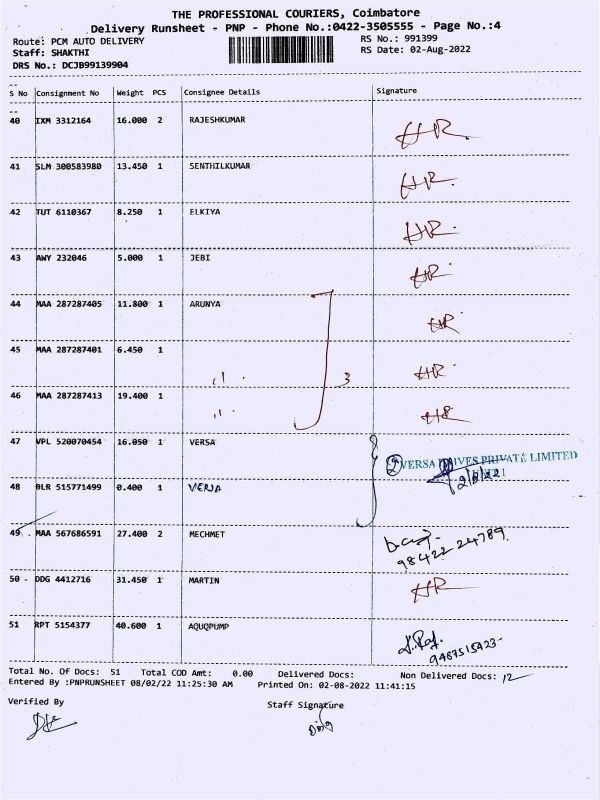 THE PROFESSIONAL COURIERS, Coimbatore
Delivery Runsheet - PNP - Phone No.:0422-3505555 - Page No.:4
Route: PCM AUTO DELIVERY RS No.: 991399
Staff: SHAKTHI RS Date: 02-Aug-2022
DRS No.: DCJB99139904
S No Consignment No Weight PCS Consignee Details Signature
40 IXM 3312164 16.000 2 RAJESHKUMAR HR.
41 SLM 300583980 13.450 1 SENTHILKUMAR HR.
42 TUT 6110367 8.250 1 ELKIYA HR.
43 AWY 232046 5.000 1 JEBI HR.
44 MAA 287287405 11.800 1 ARUNYA HR
45 MAA 287287401 6.450 1 ,, 3 HR.
46 MAA 287287413 19.400 1 ,, HR
47 VPL 520070454 16.050 1 VERSA 2 VERSA DRIVES PRIVATE LIMITED
48 BLR 515771499 0.400 1 VERSA 2/8/22
49 MAA 567686591 27.400 2 MECHMET
98422 24789
50 DDG 4412716 31.450 1 MARTIN HR
51 RPT 5154377 40.600 1 AQUQPUMP
9487515923
Total No. Of Docs: 51 Total COD Amt: 0.00 Delivered Docs: Non Delivered Docs: 12
Entered By :PNPRUNSHEET 08/02/22 11:25:30 AM Printed On: 02-08-2022 11:41:15
Verified By Staff Signature